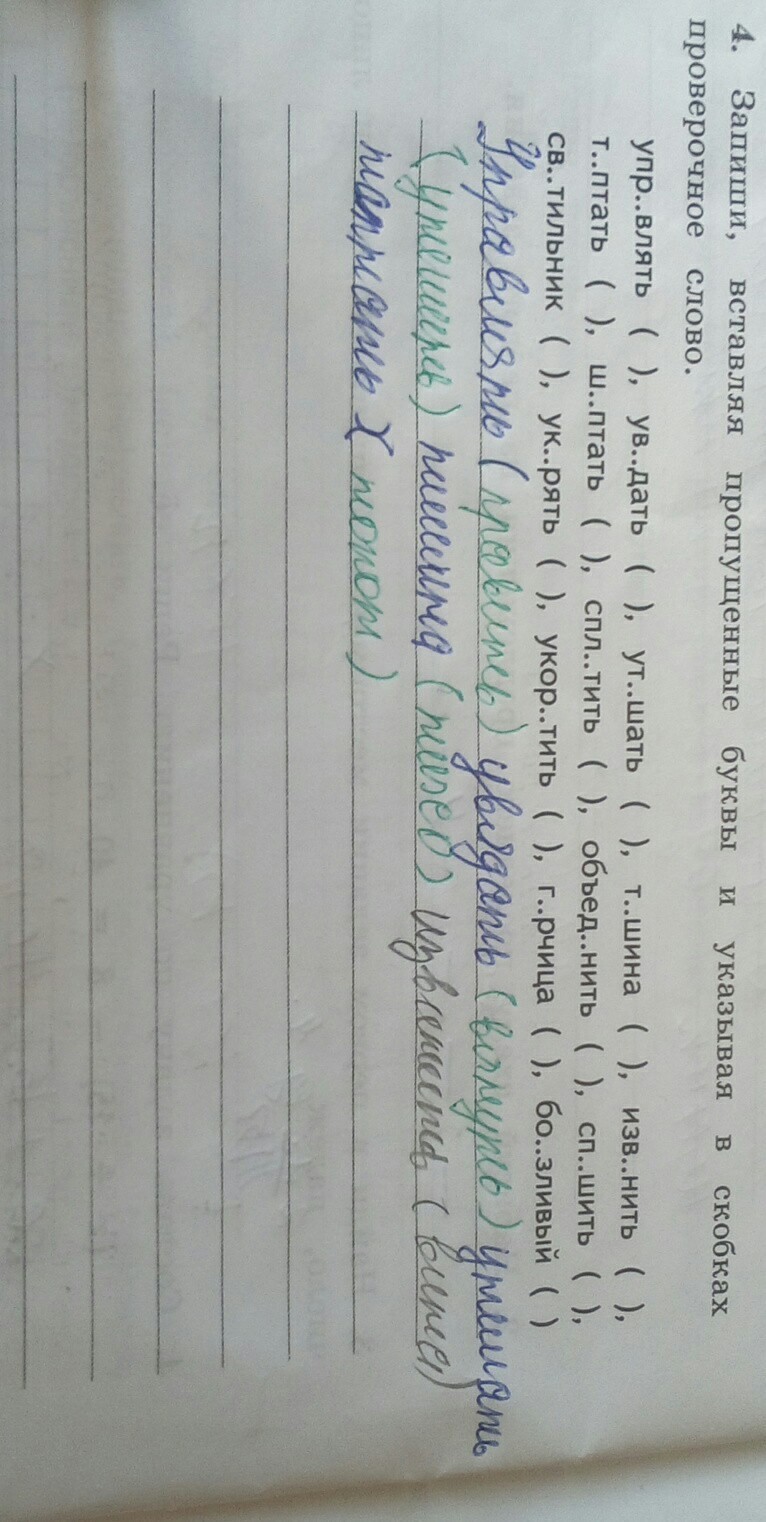 4. Запиши, вставляя пропущенные буквы и указывая в скобках
проверочное слово.
упр..влять ( ), ув..дать ( ), ут..шать ( ), т..шина ( ), изв..нить ( ),
т..птать ( ), ш..птать ( ), спл..тить ( ), объед..нить ( ), сп..шить ( ),
св..тильник ( ), ук..рять ( ), укор..тить ( ), г..рчица ( ), бо..зливый ( )
Управлять (править) увядать (вянуть) утешать
(утешить) тишина (тихо)
топтать (топот)